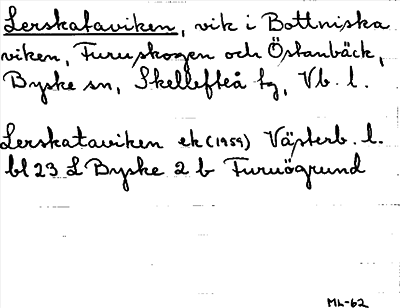 Lerskataviken, vik i Bottniska
viken, Furuskogen och Östanbäck,
Byske sn, Skellefteå tg, Vb. l.
Lerskataviken ek (1959) Västerb. l.
bl 23 L Byske 2 b Furuögrund
ML-62